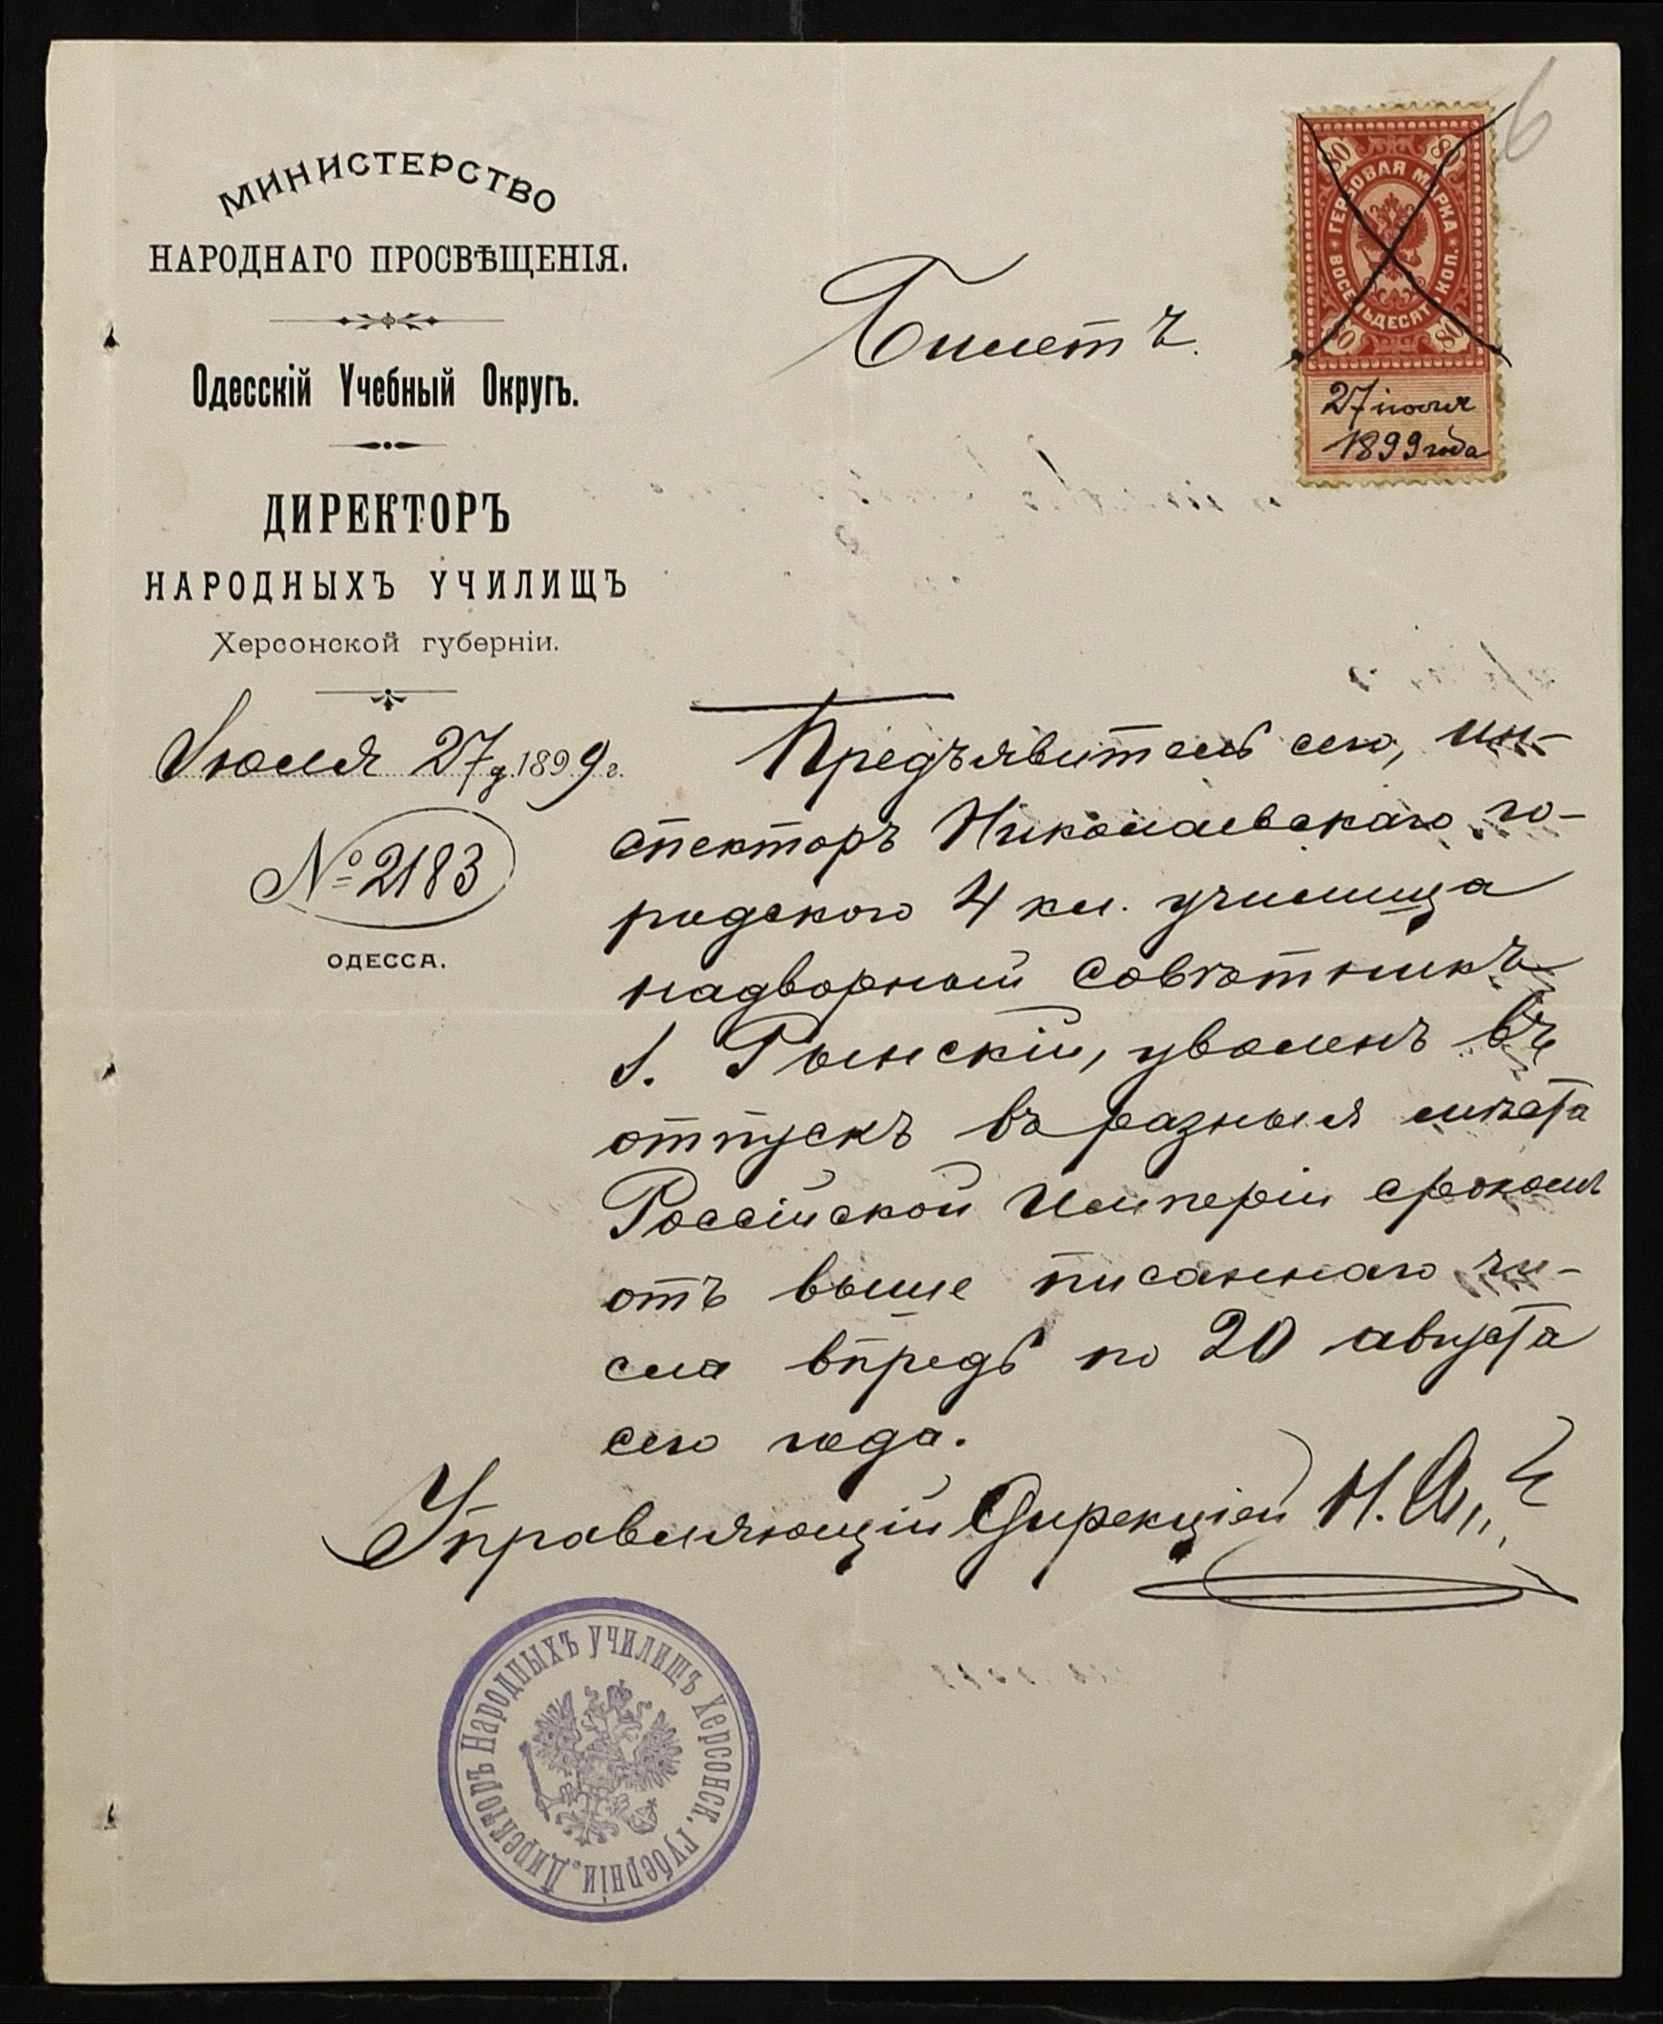 6
МИНИСТЕРСТВО
НАРОДНАГО ПРОСВѢЩЕНІЯ.
Одесскій Учебный Округъ.
ДИРЕКТОРЪ
НАРОДНЫХЪ УЧИЛИЩЪ
Херсонской губерніи.
Іюля 27 д. 1899 г.
№ 2183
ОДЕССА.
80 80
ГЕРБОВАЯ МАРКА
ВОСЕМЬДЕСЯТ КОП.
80 80
27 іюля
1899 года
Билетъ.
Предъявитель сего, ин-
спекторъ Николаевскаго го-
родского 4 кл. училища
надворный совѣтникъ
І. Рынскій, уволенъ въ
отпускъ въ разныя мѣста
Россійской Имперіи срокомъ
отъ выше писаннаго чи-
сла впредь по 20 августа
сего года.
Управляющій Дирекціей Н.
Директоръ Народныхъ училищъ Херсонск. губерніи.